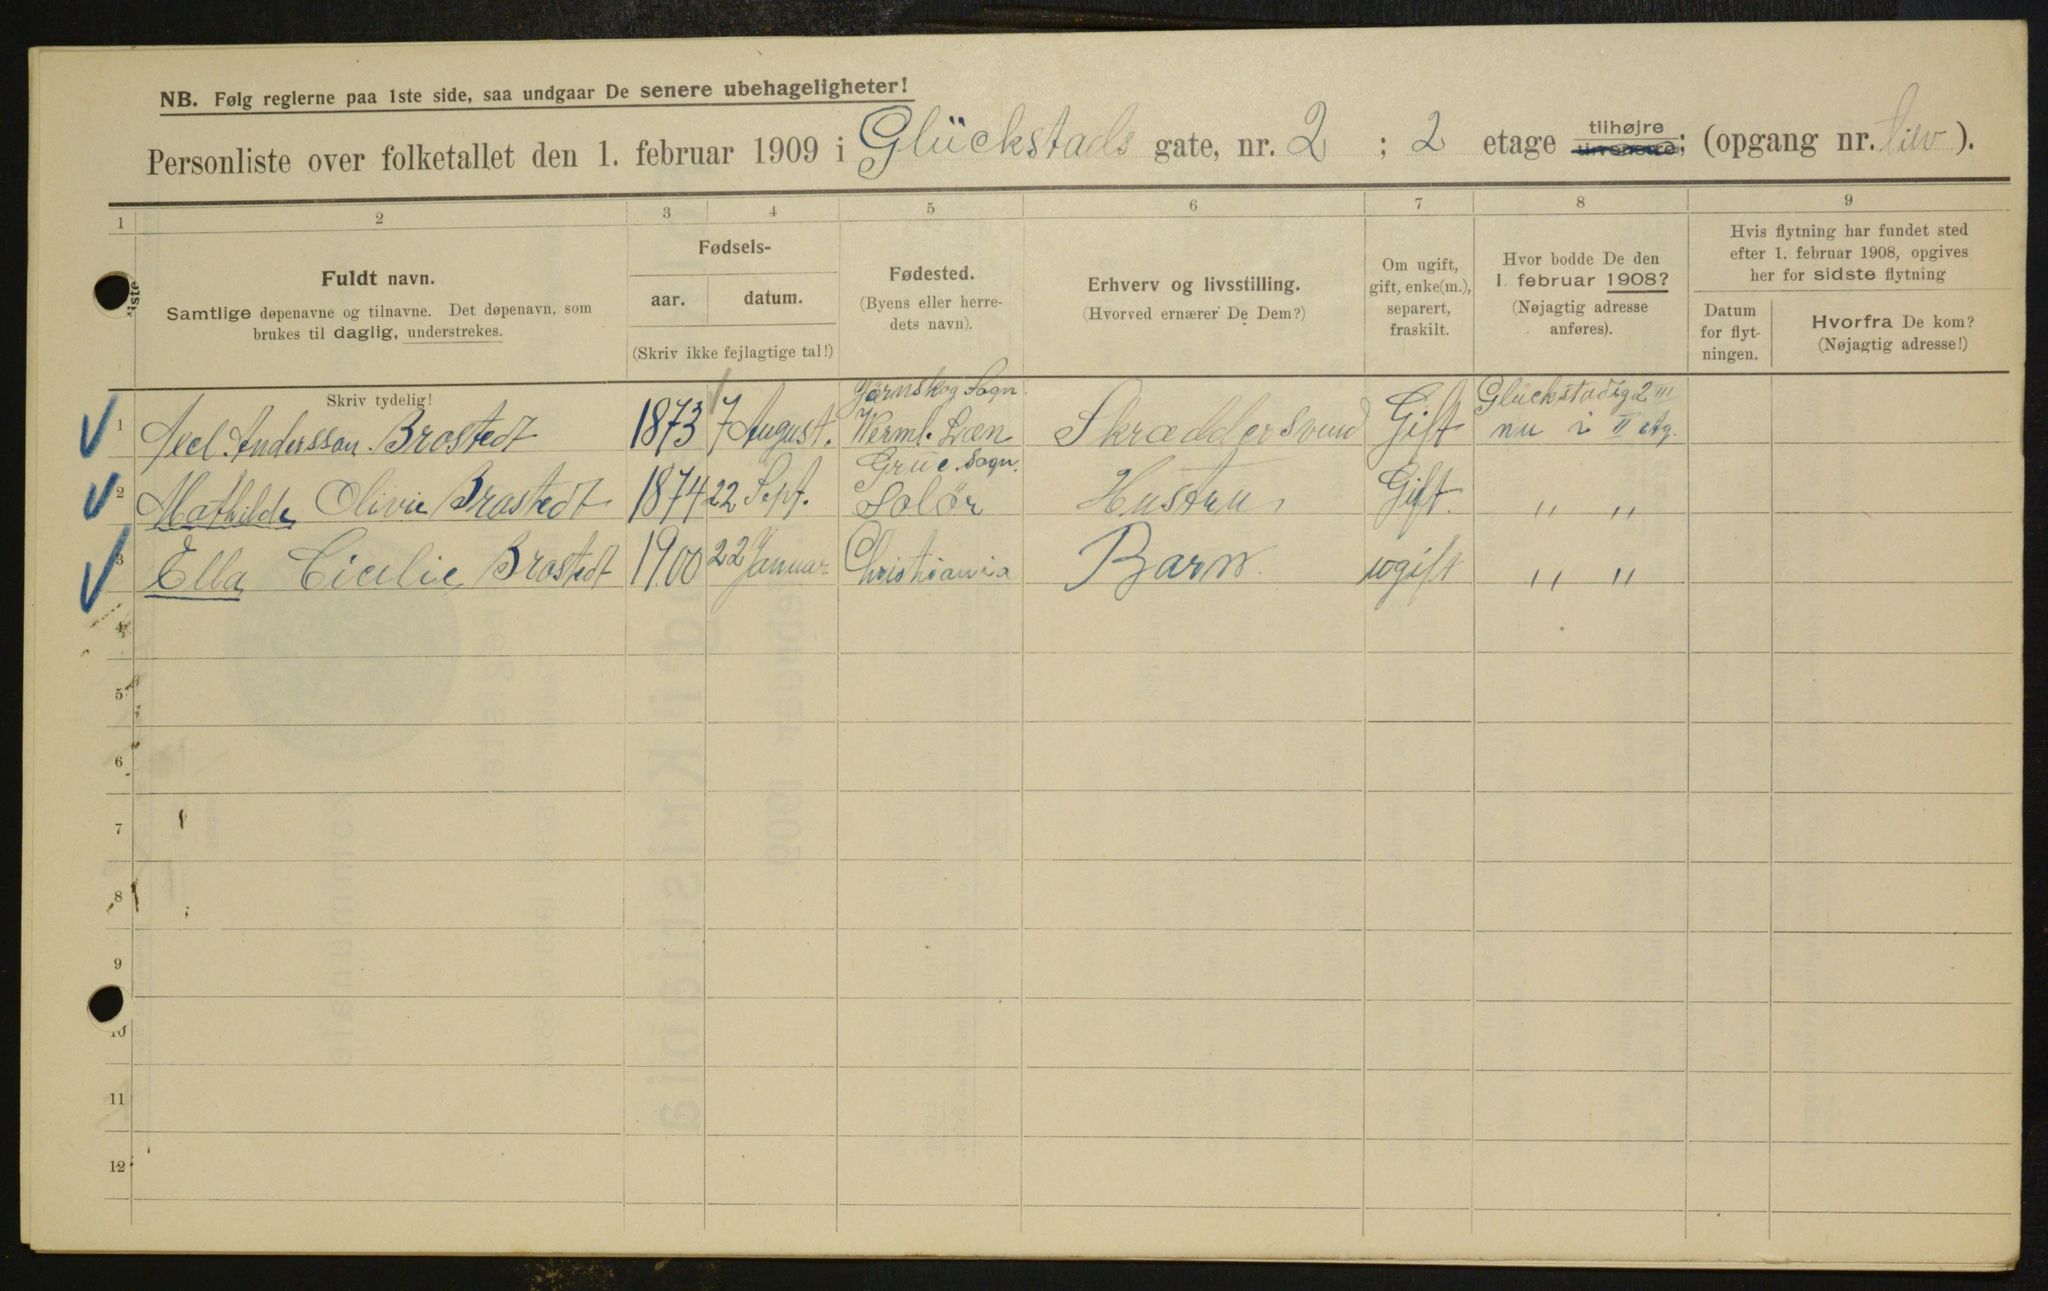 NB. Følg reglerne paa 1ste side, saa undgaar De senere ubehageligheter!
Personliste over folketallet den 1. februar 1909 i Glückstads gate, nr. 2 ; 2 etage tilhøjre; (opgang nr. ).
1 2 3 4 5 6 7 8 9
Fuldt navn.
Samtlige døpenavne og tilnavne. Det døpenavn, som
brukes til daglig, understrekes.
Skriv tydelig!
Fødsels-
aar. datum.
(Skriv ikke fejlagtige tal!)
Fødested.
(Byens eller herre-
dets navn).
Erhverv og livsstilling.
(Hvorved ernærer De Dem?)
Om ugift,
gift, enke(m.),
separert,
fraskilt.
Hvor bodde De den
1. februar 1908?
(Nøjagtig adresse
anføres).
Hvis flytning har fundet sted
efter 1. februar 1908, opgives
her for sidste flytning
Datum
for flyt-
ningen.
Hvorfra De kom?
(Nøjagtig adresse!)
Järnskog Sogn. Glückstadsg 2 III
1 Axel Andersson Brostedt 1873 7 August. Werml. Læn Skræddersvend Gift nu i II etg.
Grue Sogn.
2 Mathilde Olivie Brostedt 1874 22 Sept. Solör Hustru Gift. " "
3 Ella Cicilie Brostedt 1900 22 Januar Christiania Barn. ugift " "
4
5
6
7
8
9
10
11
12